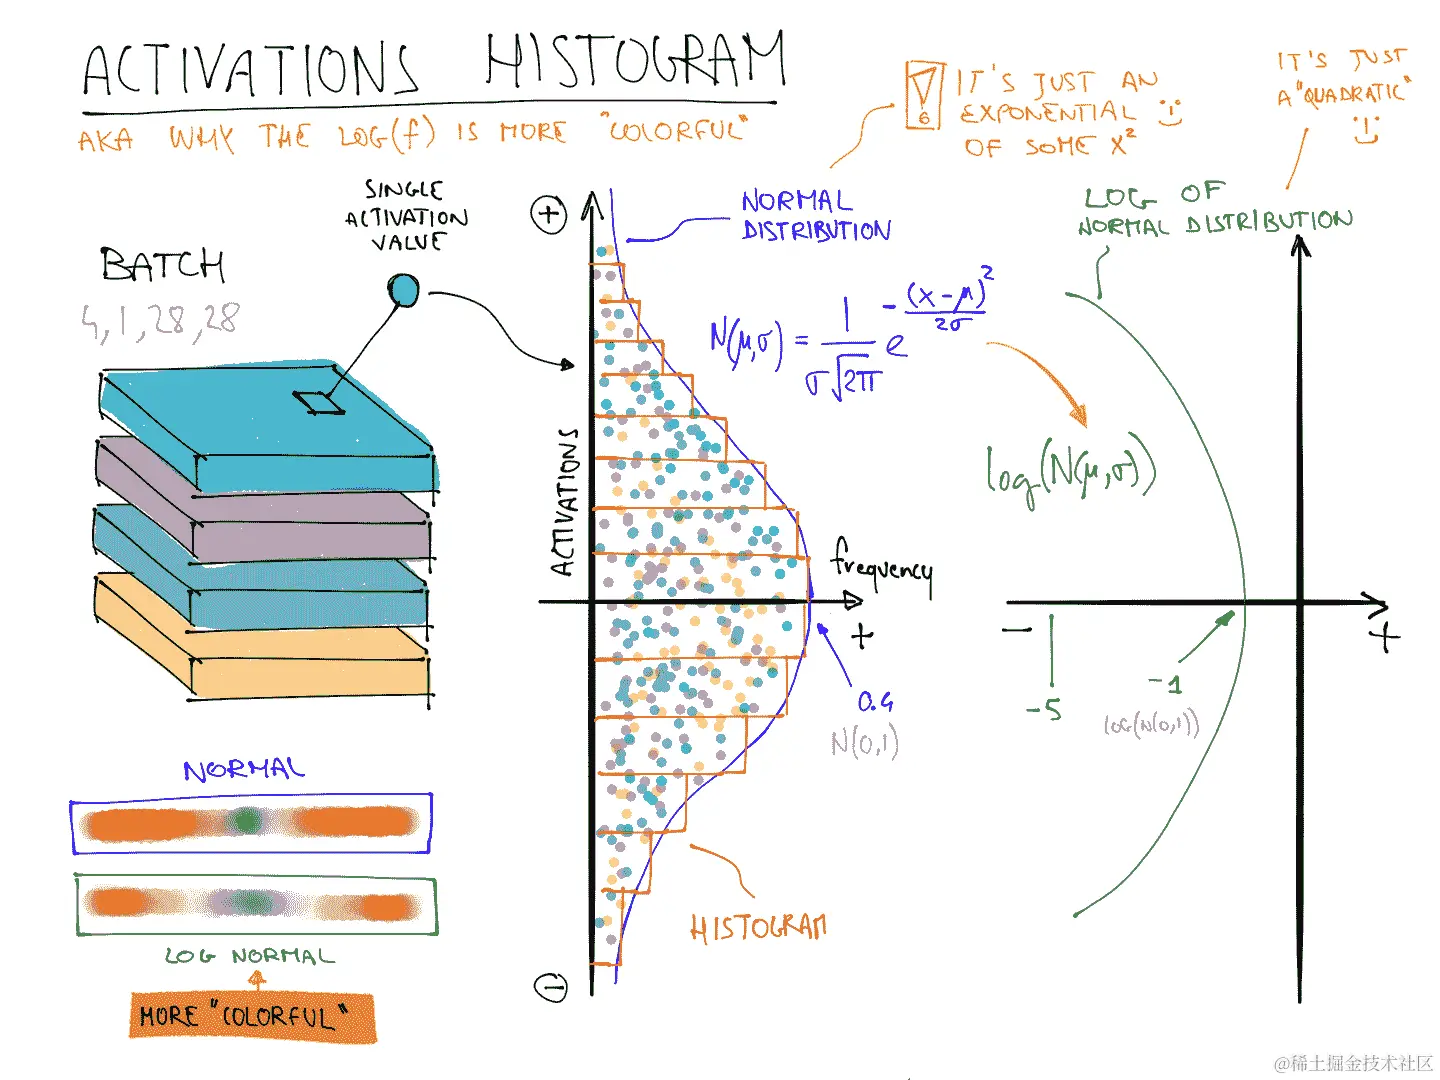 ACTIVATIONS HISTOGRAM
AKA WHY THE LOG(f) IS MORE "COLORFUL"
6
IT'S JUST AN
EXPONENTIAL
OF SOME X²
IT'S JUST
A "QUADRATIC"
SINGLE
ACTIVATION
VALUE
BATCH
4, 1, 28, 28
+
NORMAL
DISTRIBUTION
LOG OF
NORMAL DISTRIBUTION
N(μ,σ) = 1/(σ√2π) e^(-(x-μ)²/2σ)
log(N(μ,σ))
ACTIVATIONS
frequency
+
0.4
N(0,1)
-
+
-5
-1
LOG(N(0,1))
NORMAL
LOG NORMAL
MORE "COLORFUL"
HISTOGRAM
-
@稀土掘金技术社区